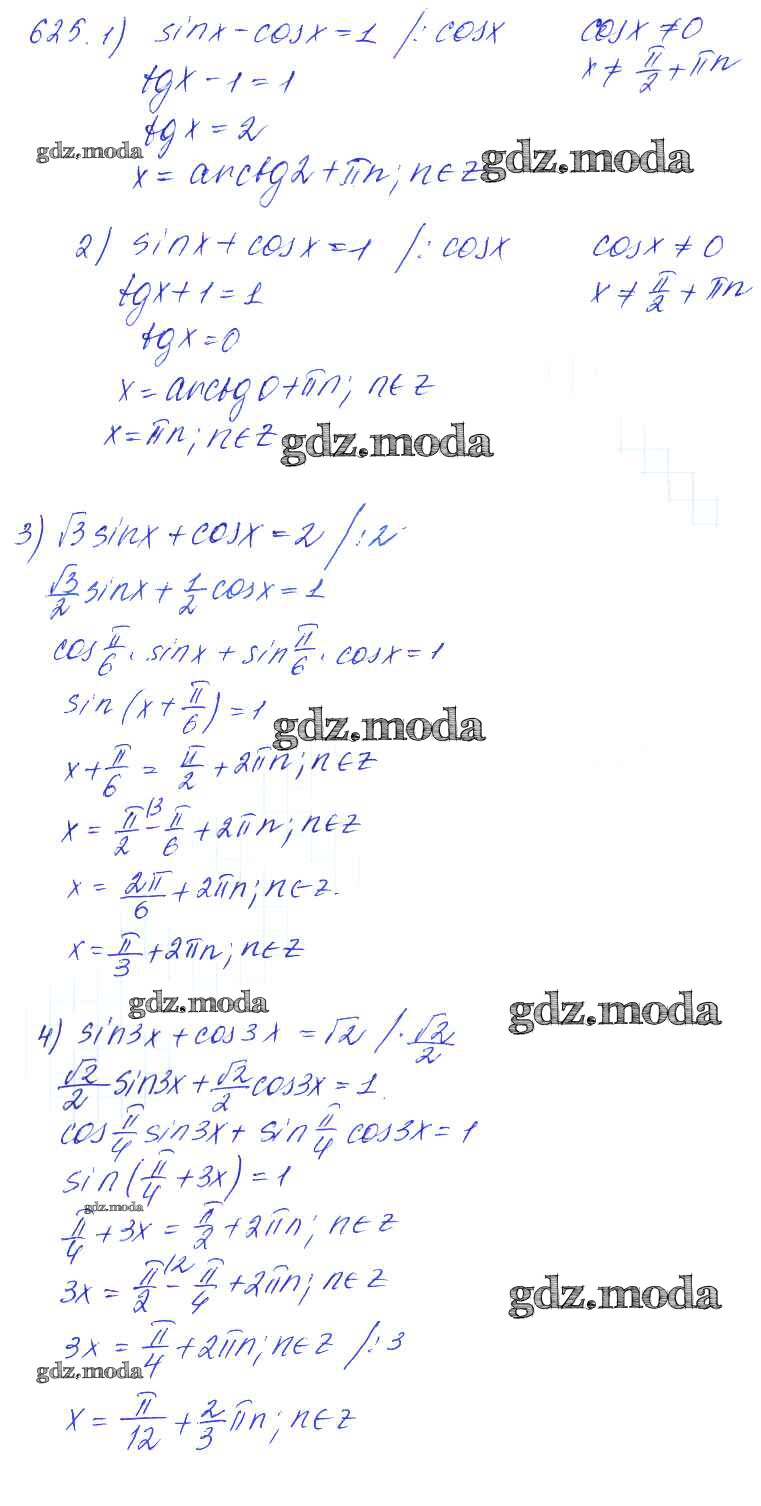 625. 1) sinx - cosx = 1 /: cosx cosx ≠ 0
tgx - 1 = 1 x ≠ π/2 + πn
tgx = 2
gdz.moda
x = arctg2 + πn; n∈Z gdz.moda
2) sinx + cosx = 1 /: cosx cosx ≠ 0
tgx + 1 = 1 x ≠ π/2 + πn
tgx = 0
x = arctg0 + πn; n∈Z
x = πn; n∈Z gdz.moda
3) √3 sinx + cosx = 2 /: 2
√3/2 sinx + 1/2 cosx = 1
cos π/6 · sinx + sin π/6 · cosx = 1
sin(x + π/6) = 1 gdz.moda
x + π/6 = π/2 + 2πn; n∈Z
x = π/2 |3 - π/6 + 2πn; n∈Z
x = 2π/6 + 2πn; n∈Z.
x = π/3 + 2πn; n∈Z
gdz.moda gdz.moda
4) sin3x + cos3x = √2 /· √2/2
√2/2 sin3x + √2/2 cos3x = 1
cos π/4 sin3x + sin π/4 cos3x = 1
sin(π/4 + 3x) = 1
gdz.moda
π/4 + 3x = π/2 + 2πn; n∈Z
3x = π/2 |2 - π/4 + 2πn; n∈Z gdz.moda
3x = π/4 + 2πn; n∈Z /: 3
gdz.moda
x = π/12 + 2/3 πn; n∈Z